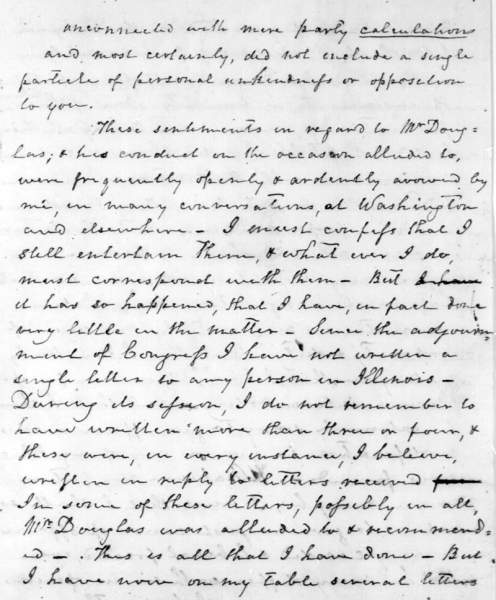 unconnected with mere party calculations
and most certainly, did not include a single
particle of personal unkindness or opposition
to you.
These sentiments in regard to Mr Doug-
las, & his conduct on the occasion alluded to,
were frequently openly & ardently avowed by
me, in many conversations, at Washington
and elsewhere - I must confess that I
still entertain them, & what ever I do,
must correspond with them - But I have
it has so happened, that I have, in fact done
very little in the matter - Since the adjourn-
ment of Congress I have not written a
single letter to any person in Illinois -
During its session, I do not remember to
have written more than three or four, &
these were, in every instance, I believe,
written in reply to letters received
In some of these letters, possibly in all,
Mr Douglas was alluded to & recommend-
ed - This is all that I have done - But
I have now on my table several letters